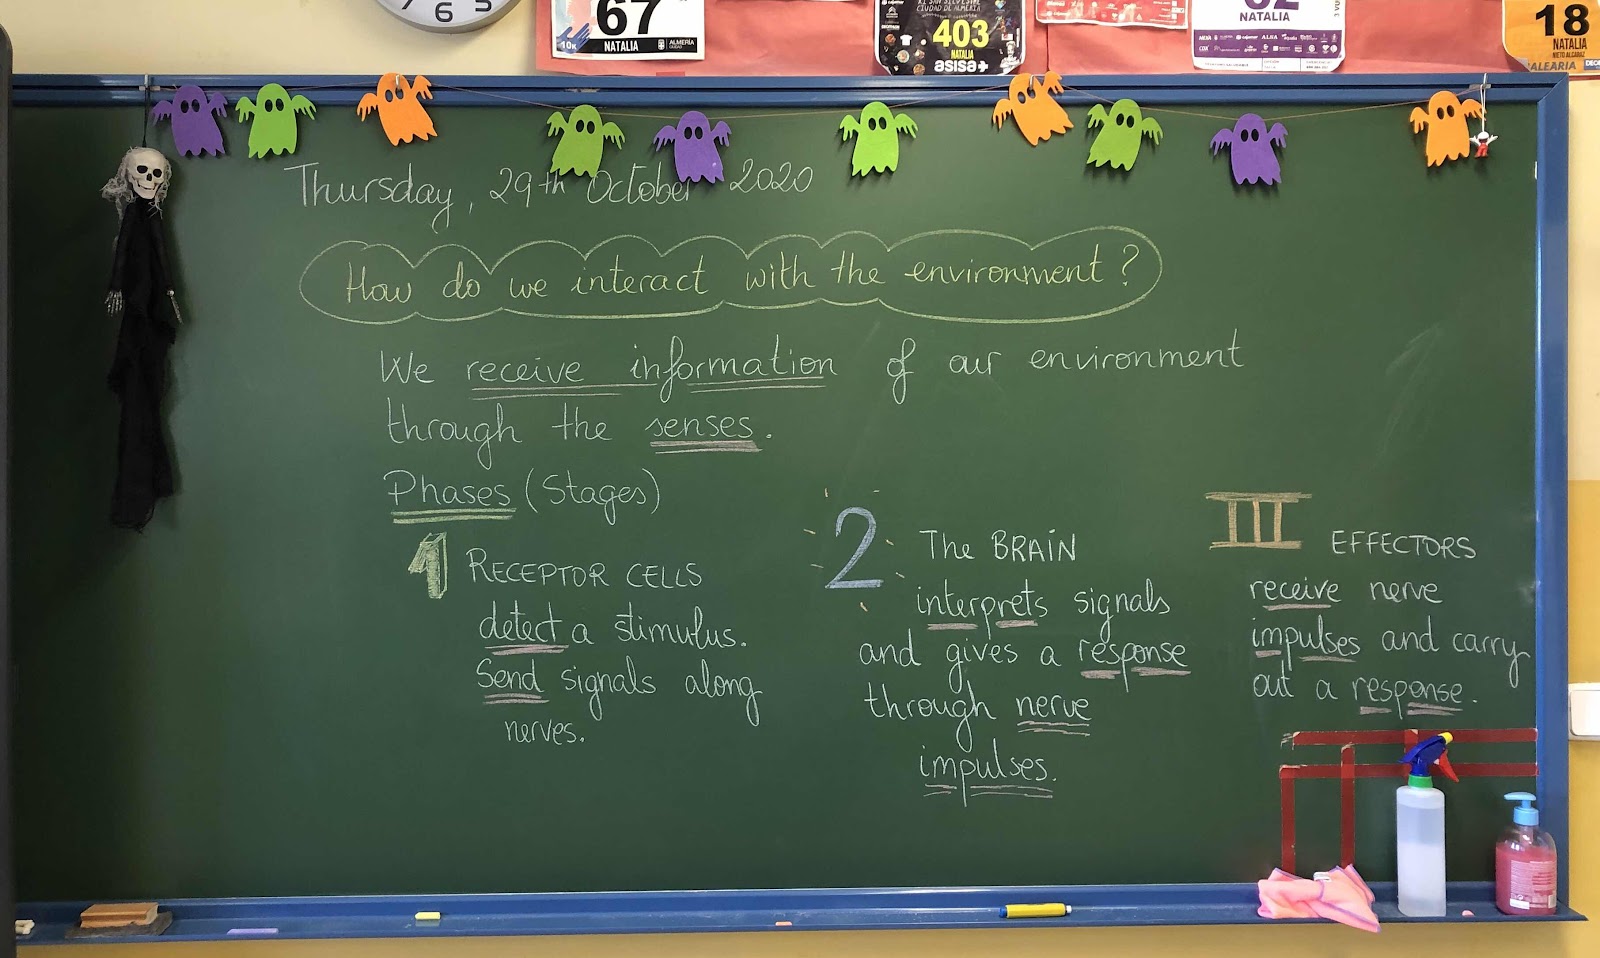 7 6 5
67
10K NATALIA ALMERÍA
CIUDAD
CIUDAD DE ALMERÍA
403
NATALIA
asisa+
NATALIA
18
NATALIA
NIETO ALCARAZ
BALEARIA
Thursday, 29th October 2020
How do we interact with the environment?
We receive information of our environment
through the senses.
Phases (Stages)
1 RECEPTOR CELLS
detect a stimulus.
Send signals along
nerves.
2 The BRAIN
interprets signals
and gives a response
through nerve
impulses.
III EFFECTORS
receive nerve
impulses and carry
out a response.